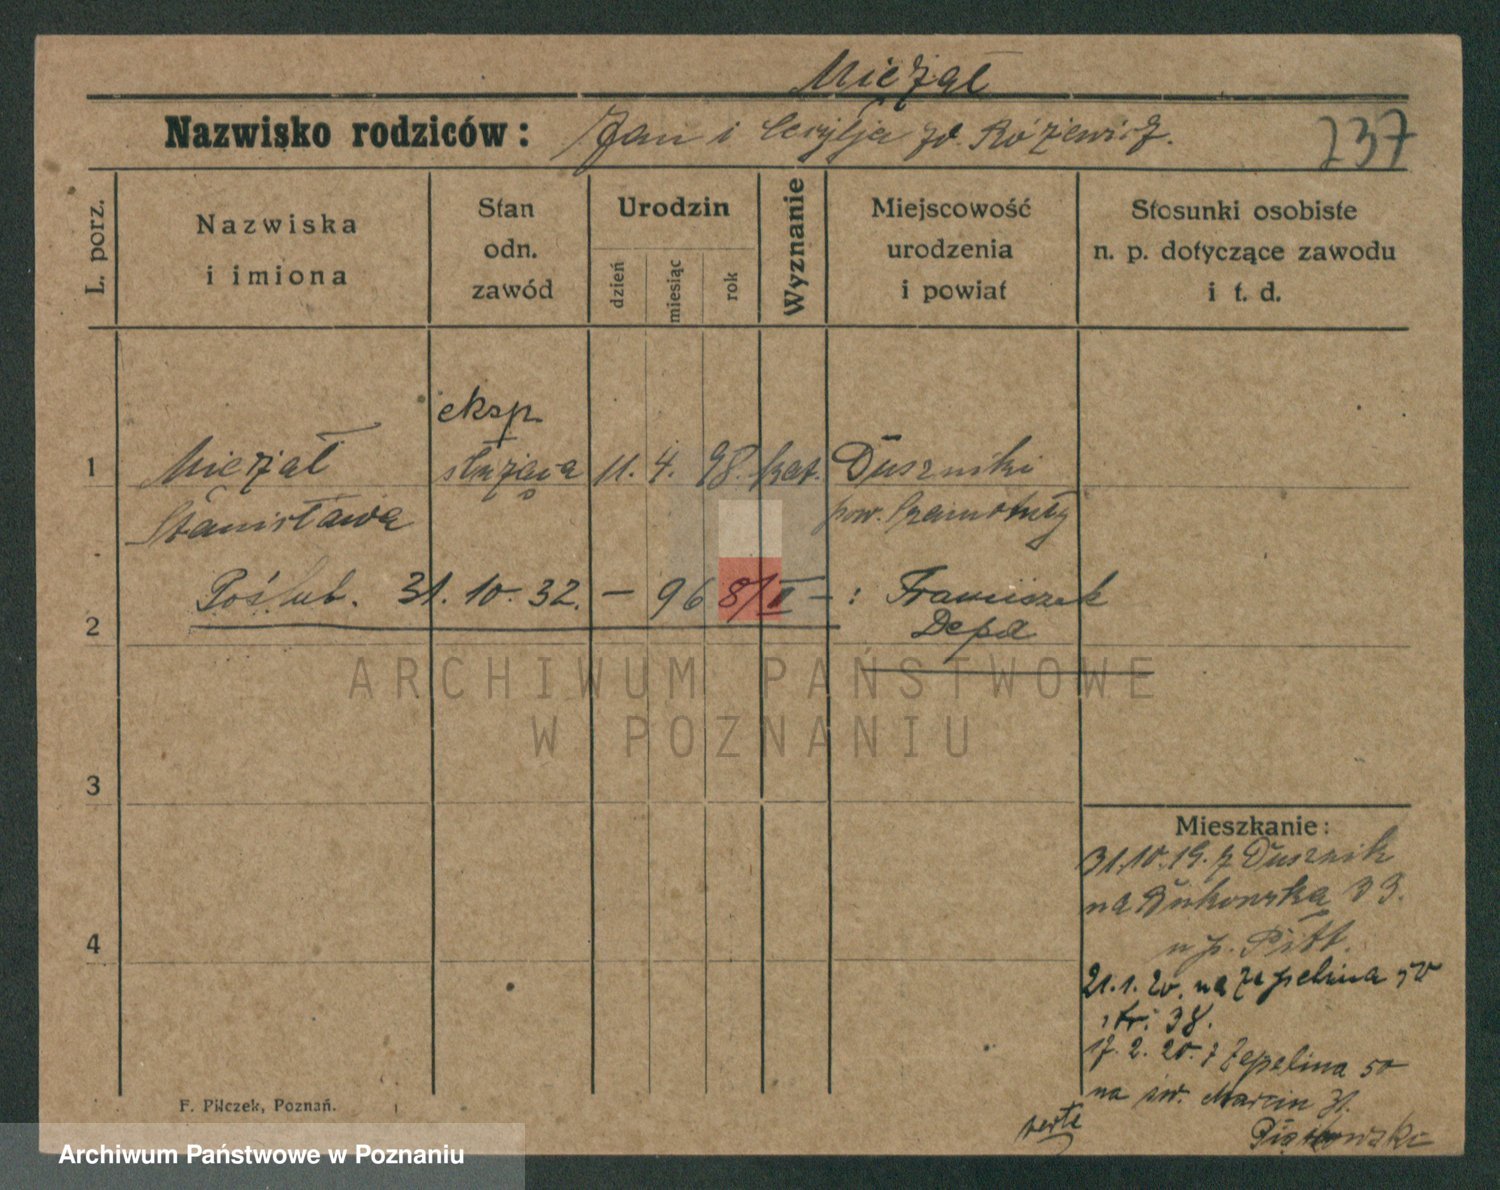 Mieżał
Nazwisko rodziców: Jan i Cecylja zd. Różewicz.
237
L. porz.
Nazwiska
i imiona
Stan
odn.
zawód
Urodzin
dzień
miesiąc
rok
Wyznanie
Miejscowość
urodzenia
i powiat
Stosunki osobiste
n. p. dotyczące zawodu
i t. d.
eksp.
1 Mieżał służąca 11. 4. 98. kat. Duszniki
Stanisława pow. Szamotuły
Poślub. 31. 10. 32. – 968/II – : Franciszek
2 Depa
ARCHIWUM PAŃSTWOWE
W POZNANIU
3
Mieszkanie:
31.10.19. z Dusznik
na Bukowska 33.
u p. Pitt.
4
21.1.20. na Zepelina 50
str. 38.
17. 2. 20. z Zepelina 50
na św. Marcin 31.
verte
Piątkowski
F. Pilczek, Poznań.
Archiwum Państwowe w Poznaniu